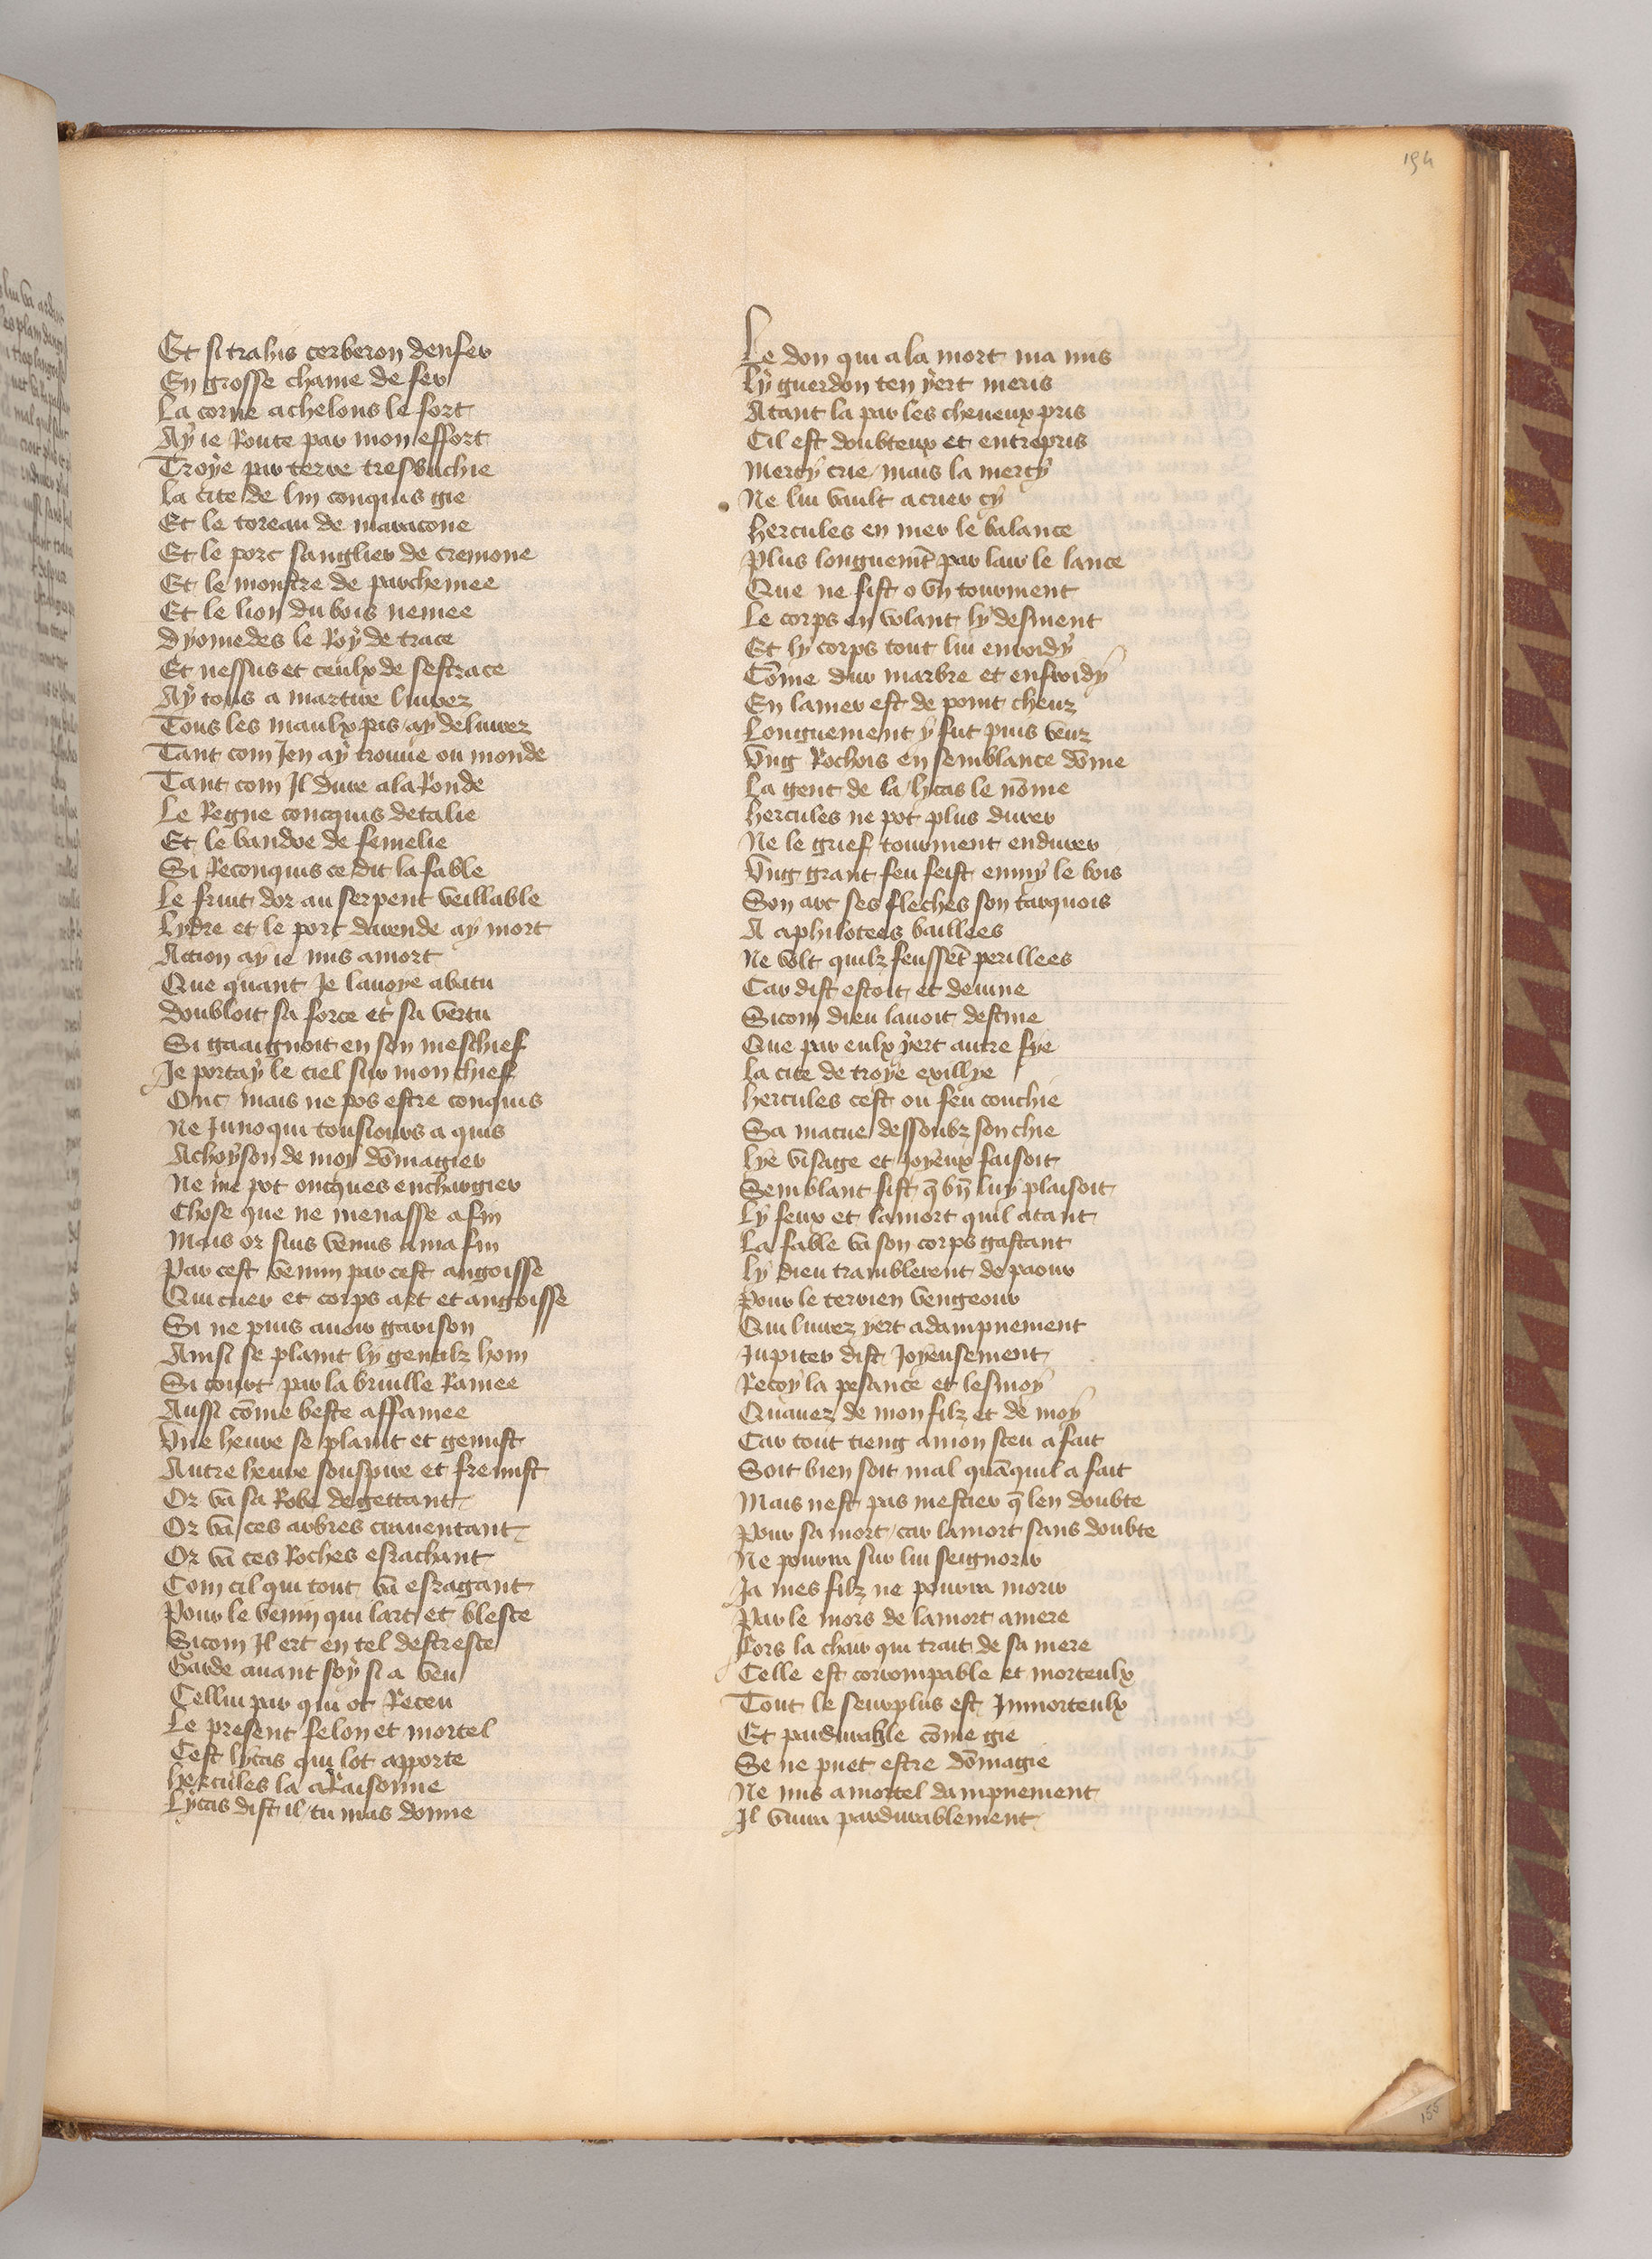 194
Et si trahis cerberon denfer
En grosse chaine de fer
La corne achelous le fort
Ay ie Route par mon effort
Troye par terre tresbuchie
La cite de lin conquis gie
Et le toreau de maracone
Et le porc sanglier de cremone
Et le monstre de parchemee
Et le lion du bois nemee
Dyomedes le Roy de trace
Et nessus et ceulx de sestrace
Ay tous a martire liurez
Tous les maulx pas ay deliurez
Tant com Jen ay trouue ou monde
Tant com Il dure a la Ronde
Le Regne concquis detalie
Et le bandre de femelie
Si Reconquis ce dit la fable
Le fruit dor au serpent veillable
Lydre et le porc darende ay mort
Action ay ie mis a mort
Que quant Je lauoye abatu
Doubloit sa force et sa vertu
Si gaaignoit en son meschief
Je portay le ciel sur mon chief
Onc mais ne pos estre conquis
Ne Juno qui tousiours a quis
Achoyson de moy dōmagier
Ne me pot oncques enchargier
Chose que ne menasse a fin
Mais or suis venus a ma fin
Par cest venim par cest angoisse
Qui cuer et corps art et angoisse
Si ne puis auoir garison
Ainsi se plaint ly gentilz hom
Si court par la bruille Ramee
Aussi cōme beste affamee
Vne heure se plaint et gemist
Autre heure souspire et fremist
Or va sa Robe degettant
Or va ces arbres crauentant
Or va ces Roches esrachant
Com cil qui tout va esragant
Pour le venin qui lart et bleste
Sicom Il ert en tel destresce
Garde auant soy si a veu
Cellui par qui ot Receu
Le present felon et mortel
Cest lycas qui lot apporte
Hercules la aRaisonne
Lycas dist il tu mas donne
Le don qui a la mort ma mis
Ly guerdon ten yert meris
Atant la par les cheueux pris
Cil est doubteux et entrepris
Mercy crie mais la mercy
Ne lui vault a crier cy
Hercules en mer le balance
Plus longuemt̄ par lair le lance
Que ne fist o vn tourment
Le corps en volant ly desment
Et ly corps tout lui enroidy
Cōme dur marbre et enfroidy
En lamer est de point cheuz
Longuement y fut puis veuz
Vng Rochois en semblance dōme
La gent de la lycas le nōme
Hercules ne pot plus durer
Ne le grief tourment endurer
Vng grant feu feist enmy le bois
Son arc ses fleches son tarquois
A aphilotees baillees
Ne volt quilz feussēt perillees
Car dist estoit et deuine
Sicom dieu lauoit destine
Que par eulx yert autre fye
La cite de troye exillye
Hercules cest ou feu couchie
Sa macue dessoubz son chie
Lye visage et Joyeux faisoit
Semblant fist q̄ bn̄ luy plaisoit
Ly feux et lamort quil atant
La fable va son corps gastant
Ly dieu tramblerent de paour
Pour le terrien vengeour
Qui liurez yert a dampnement
Jupiter dist Joyeusement
Recoy la pesance et lesmoy
Quauez de mon filz et de moy
Car tout tieng a mon sceu a fait
Soit bien soit mal quāquil a fait
Mais nest pas mestier q̄ len doubte
Pour sa mort car lamort sans doubte
Ne pourra sur lui seignorir
Ja mes filz ne pourra morir
Par le mors de lamort amere
Fors la chair qui trait de sa mere
Celle est corrompable et morteulx
Tout le seurplus est Jnmorteulx
Et pardurable cōme gie
Se ne puet estre dōmagie
Ne mis a mortel dampnement
Il viura pardurablement
155